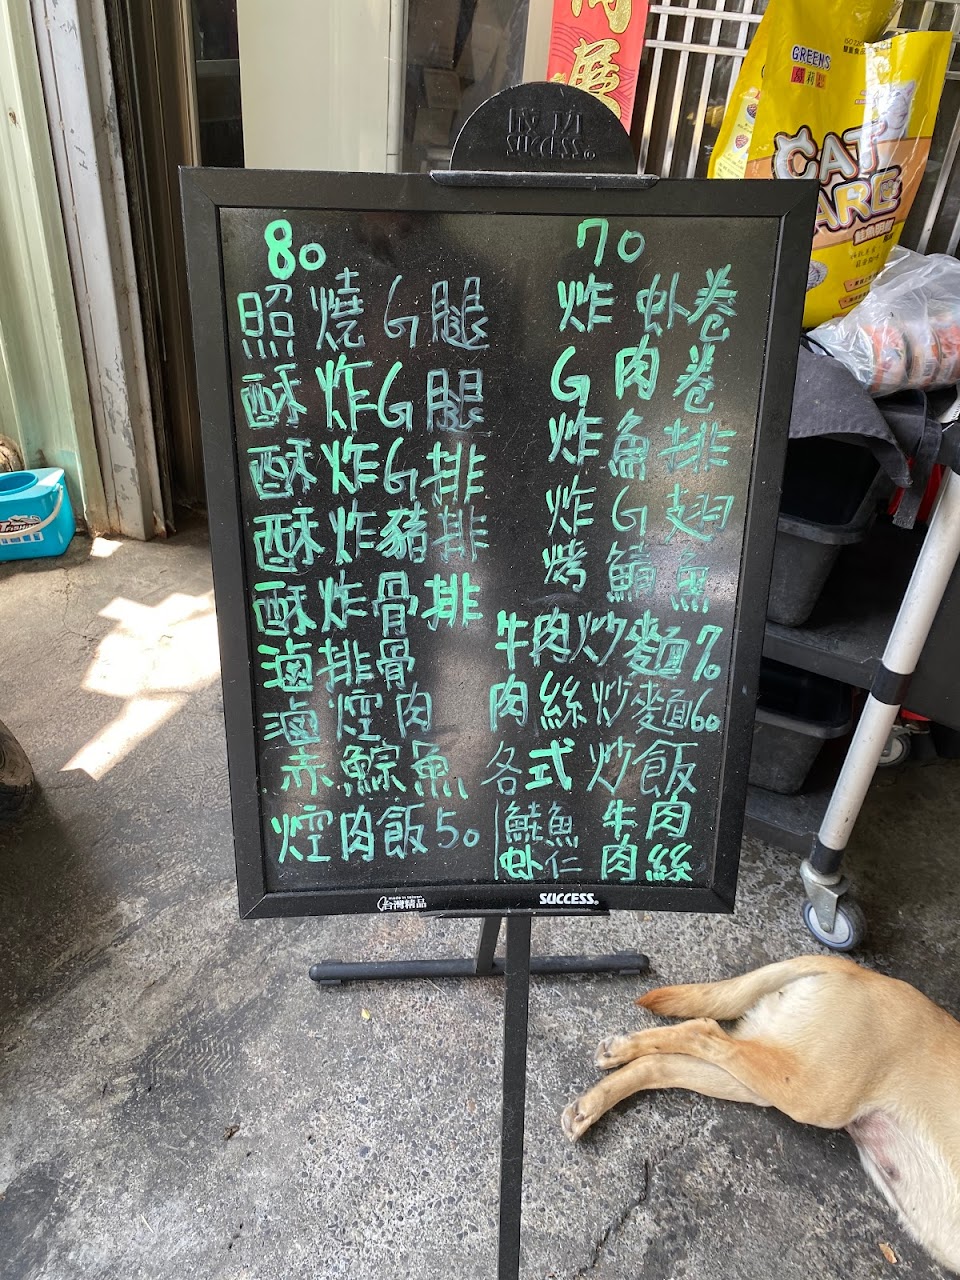 成功
SUCCESS
80
照燒G腿
酥炸G腿
酥炸G排
酥炸豬排
酥炸骨排
滷排骨
滷焢肉
赤鯮魚
焢肉飯50
70
炸蚵卷
G肉卷
炸魚排
炸G翅
烤鯖魚
牛肉炒麵70
肉絲炒麵60
各式炒飯
鮭魚 牛肉
蝦仁 肉絲
台灣精品
SUCCESS
GREENS
CAT
CARE